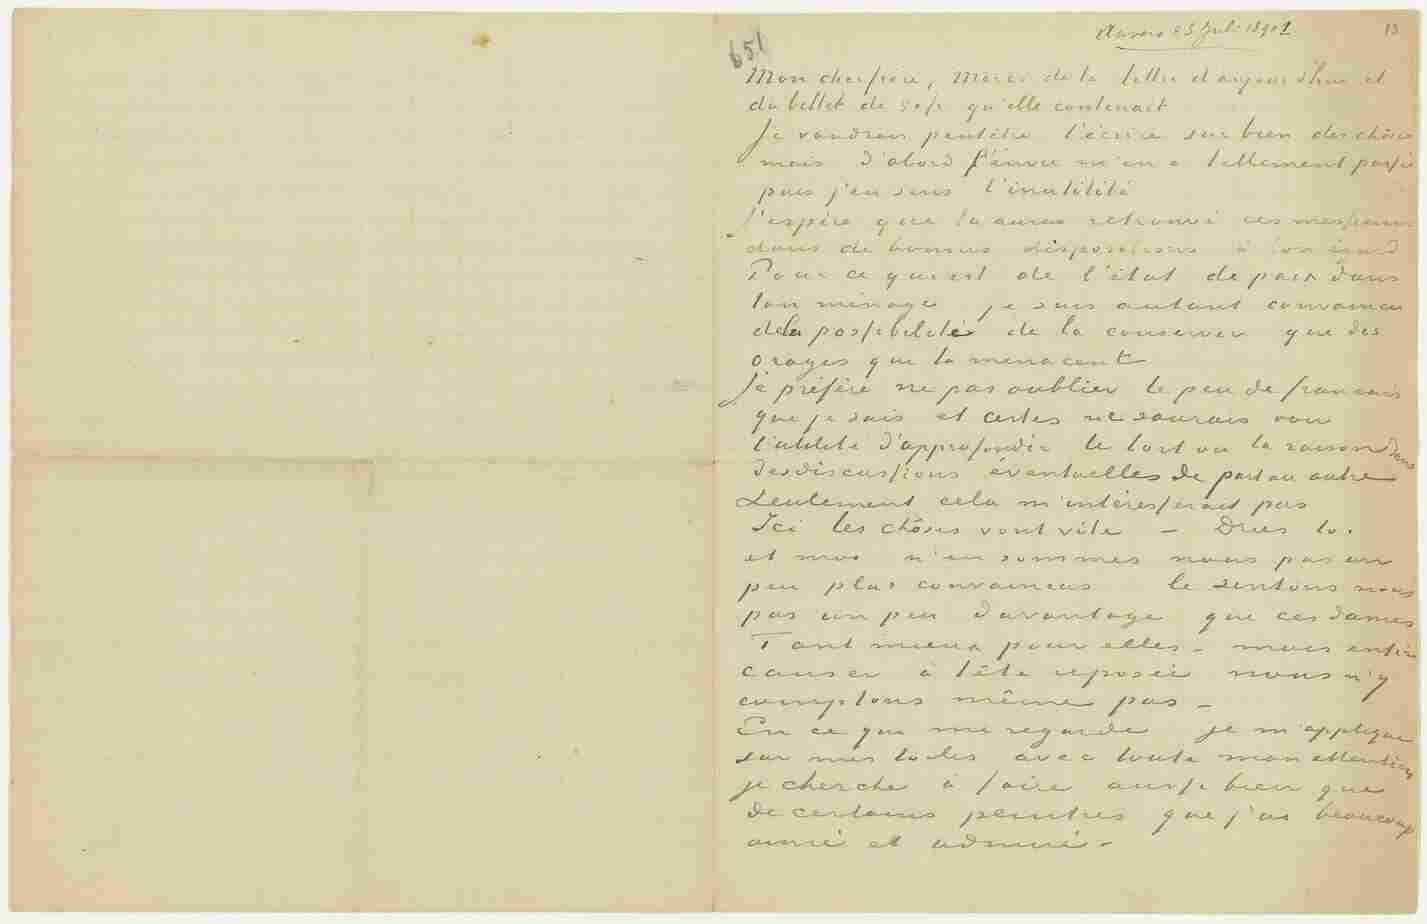 Auvers 23 Juli 1890
13
651
Mon cher frère, Merci de ta lettre d'aujourd'hui et
du billet de 50 fr qu'elle contenait
Je voudrais peutêtre t'écrire sur bien des chôses
mais d'abord l'envie m'en a tellement passé
puis j'en sens l'inutilité
J'espère que tu auras retrouvé ces messieurs
dans de bonnes dispositions à ton égard
Pour ce qui est de l'état de paix dans
ton ménage, je suis autant convaincu
de la possibilité de la conserver que des
orages qui la menacent
Je préfère ne pas oublier le peu de francais
que je sais et certes ne saurais voir
l'utilité d'approfondir le tort ou la raison dans
des discussions éventuelles de part ou autre
Seulement cela m'intéresserait pas
Ici les chôses vont vite – Dries toi
et moi n'en sommes nous pas un
peu plus convaincus le sentons nous
pas un peu davantage que ces dames
Tant mieux pour elles – mais enfin
causer à tête reposée nous n'y
comptons même pas –
En ce qui me regarde je m'applique
sur mes toiles avec toute mon attention
je cherche à faire aussi bien que
de certains peintres que j'ai beaucoup
aimé et admiré –